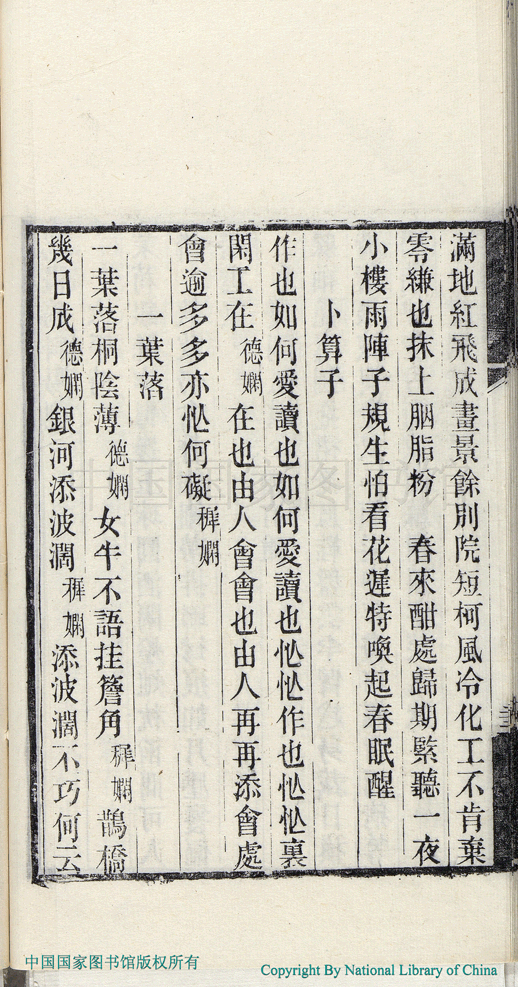 滿地紅飛成畫景餘別院短柯風冷化工不肯棄
零縑也抹上胭脂粉　春來酣處歸期緊聽一夜
小樓雨陣子規生怕看花遲特喚起春眠醒
卜算子
作也如何愛讀也如何愛讀也忙忙作也忙忙裏
閑工在德嫻在也由人會會也由人再再添會處
會逾多多亦忙何礙穉嫻
一葉落
一葉落桐陰薄德嫻女牛不語挂簷角穉嫻鵲橋
幾日成德嫻銀河添波濶穉嫻添波濶不巧何云
中国国家图书馆
中国国家图书馆版权所有
Copyright By National Library of China